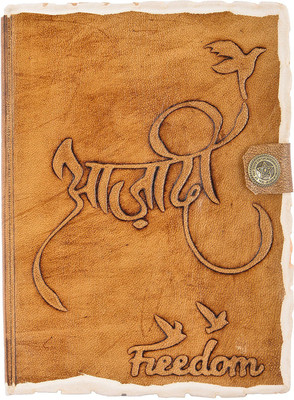 आज़ादी
Freedom